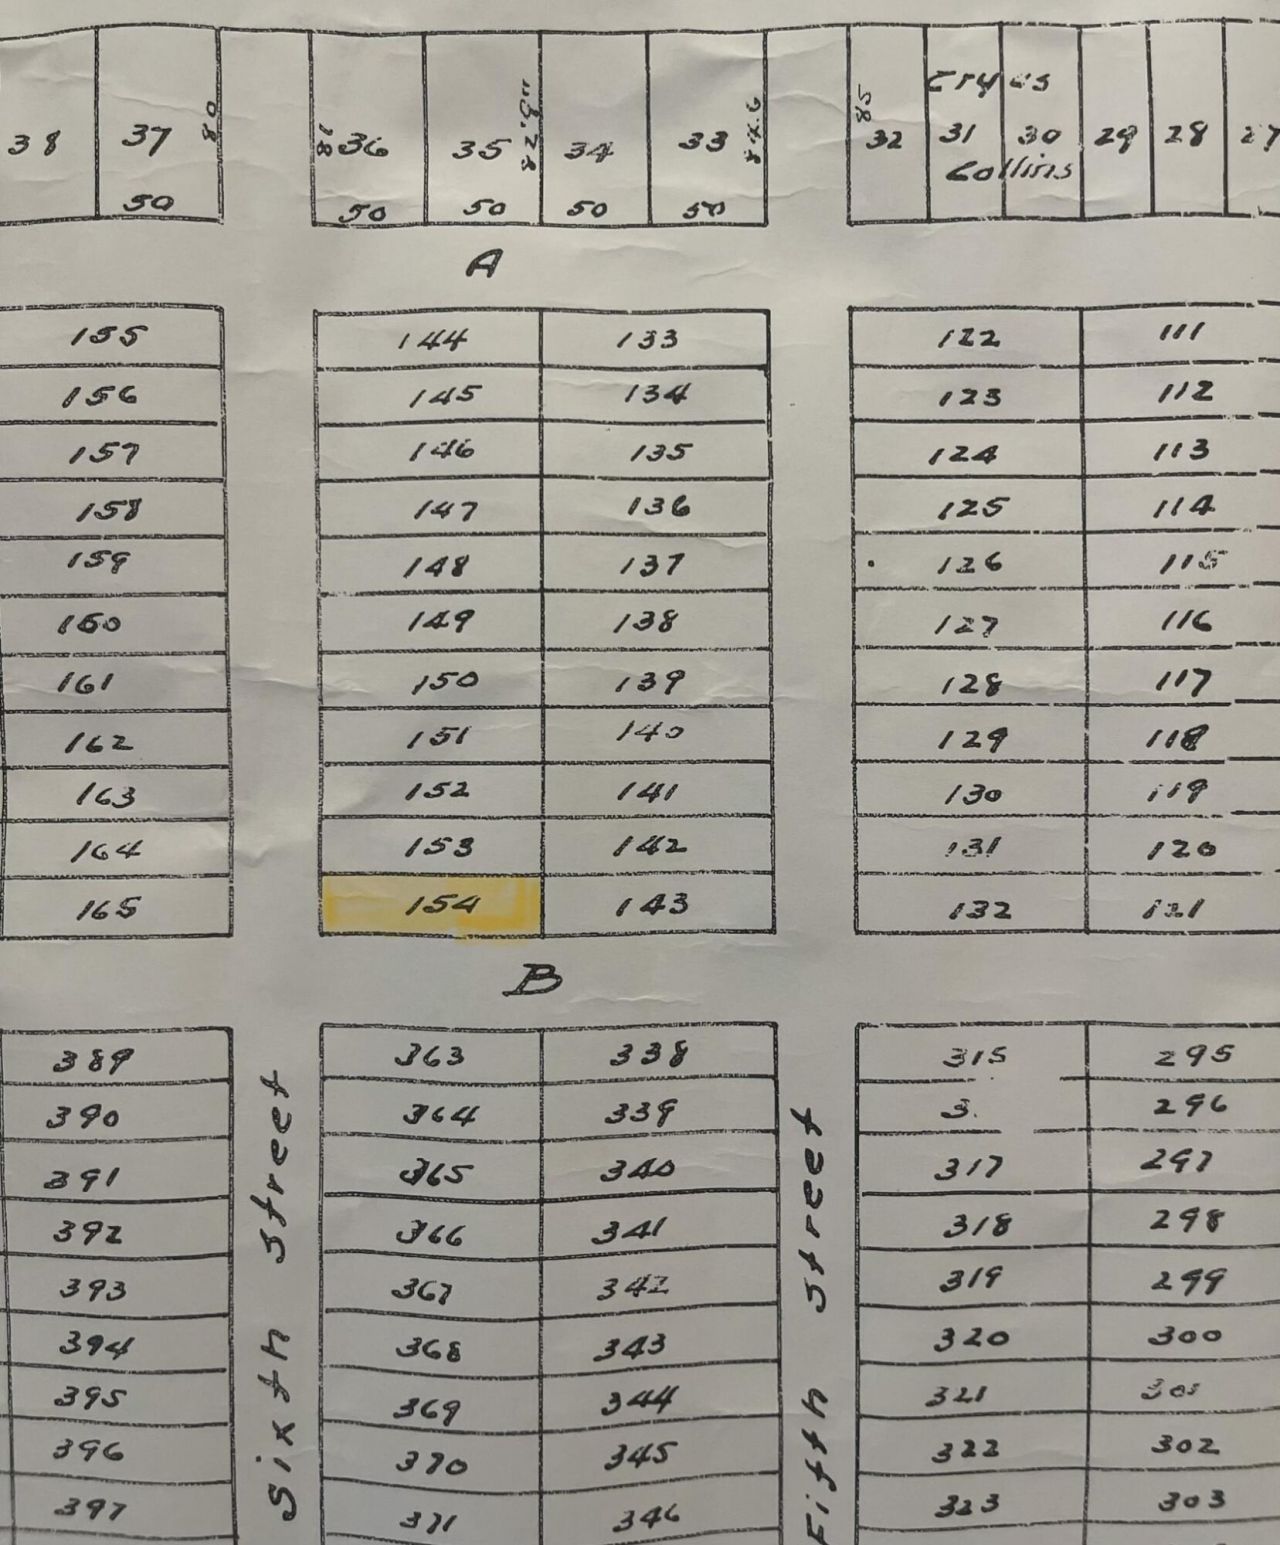 38 37 80 81 36 35 82.9" 34 33 84.6 85 32 31 30 29 28 27
Collins
50 50 50 50 50
A
155 144 133 122 111
156 145 134 123 112
157 146 135 124 113
158 147 136 125 114
159 148 137 126 115
160 149 138 127 116
161 150 139 128 117
162 151 140 129 118
163 152 141 130 119
164 153 142 131 120
165 154 143 132 121
B
389 363 338 315 295
390 364 339 3 296
391 365 340 317 297
392 366 341 318 298
393 367 342 319 299
394 368 343 320 300
395 369 344 321 301
396 370 345 322 302
397 371 346 323 303
Sixth Street
Fifth Street